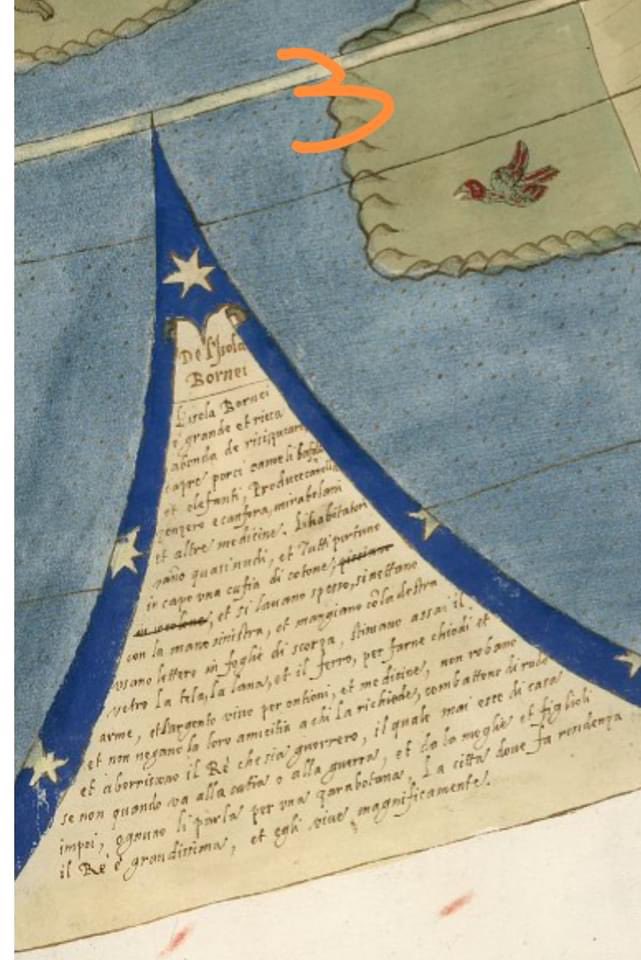 3
De l'Isola
Bornei
L'isola Bornei
è grande et ricca
abonda de risi, zuccaro
capre porci cameli bufali
et elefanti, Produce canella
zenzero e canfora, mirabolani
et altre medicine. Li habitatori
vano quasi nudi, et Tutti portano
in capo una cufia di cotone,
et si lavano spesso, si nettano
con la mano sinistra, et mangiano cō la destra
usano lettere in foglie di scorza, stimano assai il
vetro la tela, la lana, et il ferro, per farne chiodi et
arme, et l'argento vivo per ontioni, et medicine, non robano
et non negano la loro amicitia a chi la richiede, combattono di rado
et aborriscono il Rè che sia guerrero, il quale mai esce di casa
se non quando va alla catia o alla guerra, et da la moglie et figlioli
impoi, ognuno li parla per una zarabotana. La citta dove fa residenza
il Rè è grandissima, et egli vive magnificamente.